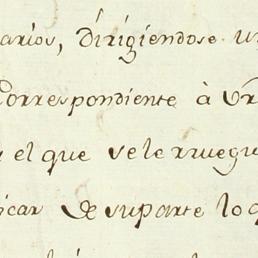 arios, dirigiendose un
Correspondiente à Ur
el que se le rruegu
icar de suparte lo q